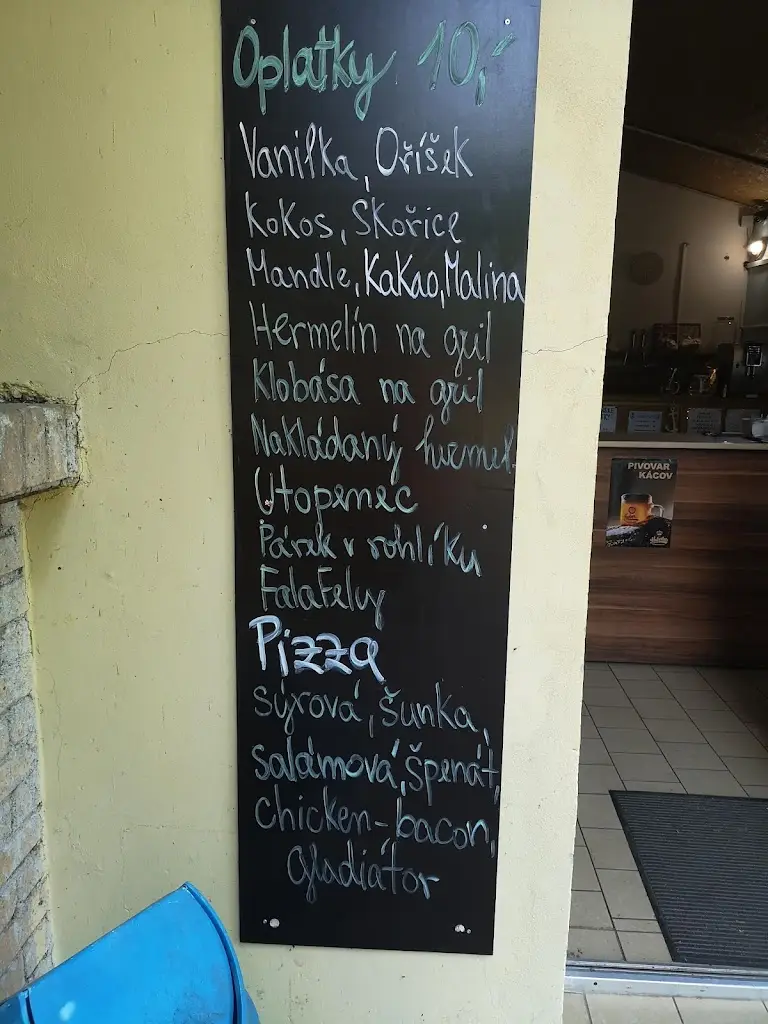 Oplatky 10,-
Vanilka, Oříšek
Kokos, Skořice
Mandle, Kakao, Malina
Hermelín na gril
Klobása na gril
Nakládaný hermel
Utopenec
Párek v rohlíku
Falafely
Pizza
Sýrová, Šunka,
Salámová, špenát,
Chicken-bacon,
Gladiátor
PIVOVAR
KÁCOV